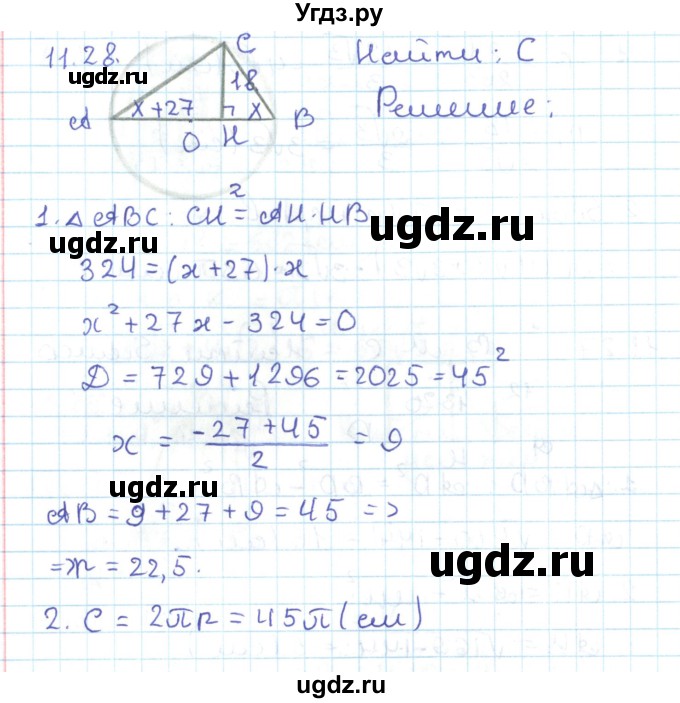 Угдз.ру
11.28.
ugdz.ru
C
Найти: C
18
x+27
x
A
O
H
B
Решение:
1. △ ABC: CH² = AH·HB
ugdz.ru
ugdz.ru
324 = (x+27)·x
x² + 27x - 324 = 0
D = 729 + 1296 = 2025 = 45²
x = (-27+45)/2 = 9
ugdz.ru
AB = 9 + 27 + 9 = 45 =>
=> r = 22,5.
ugdz.ru
2. C = 2πR = 45π (см)
ugdz.ru